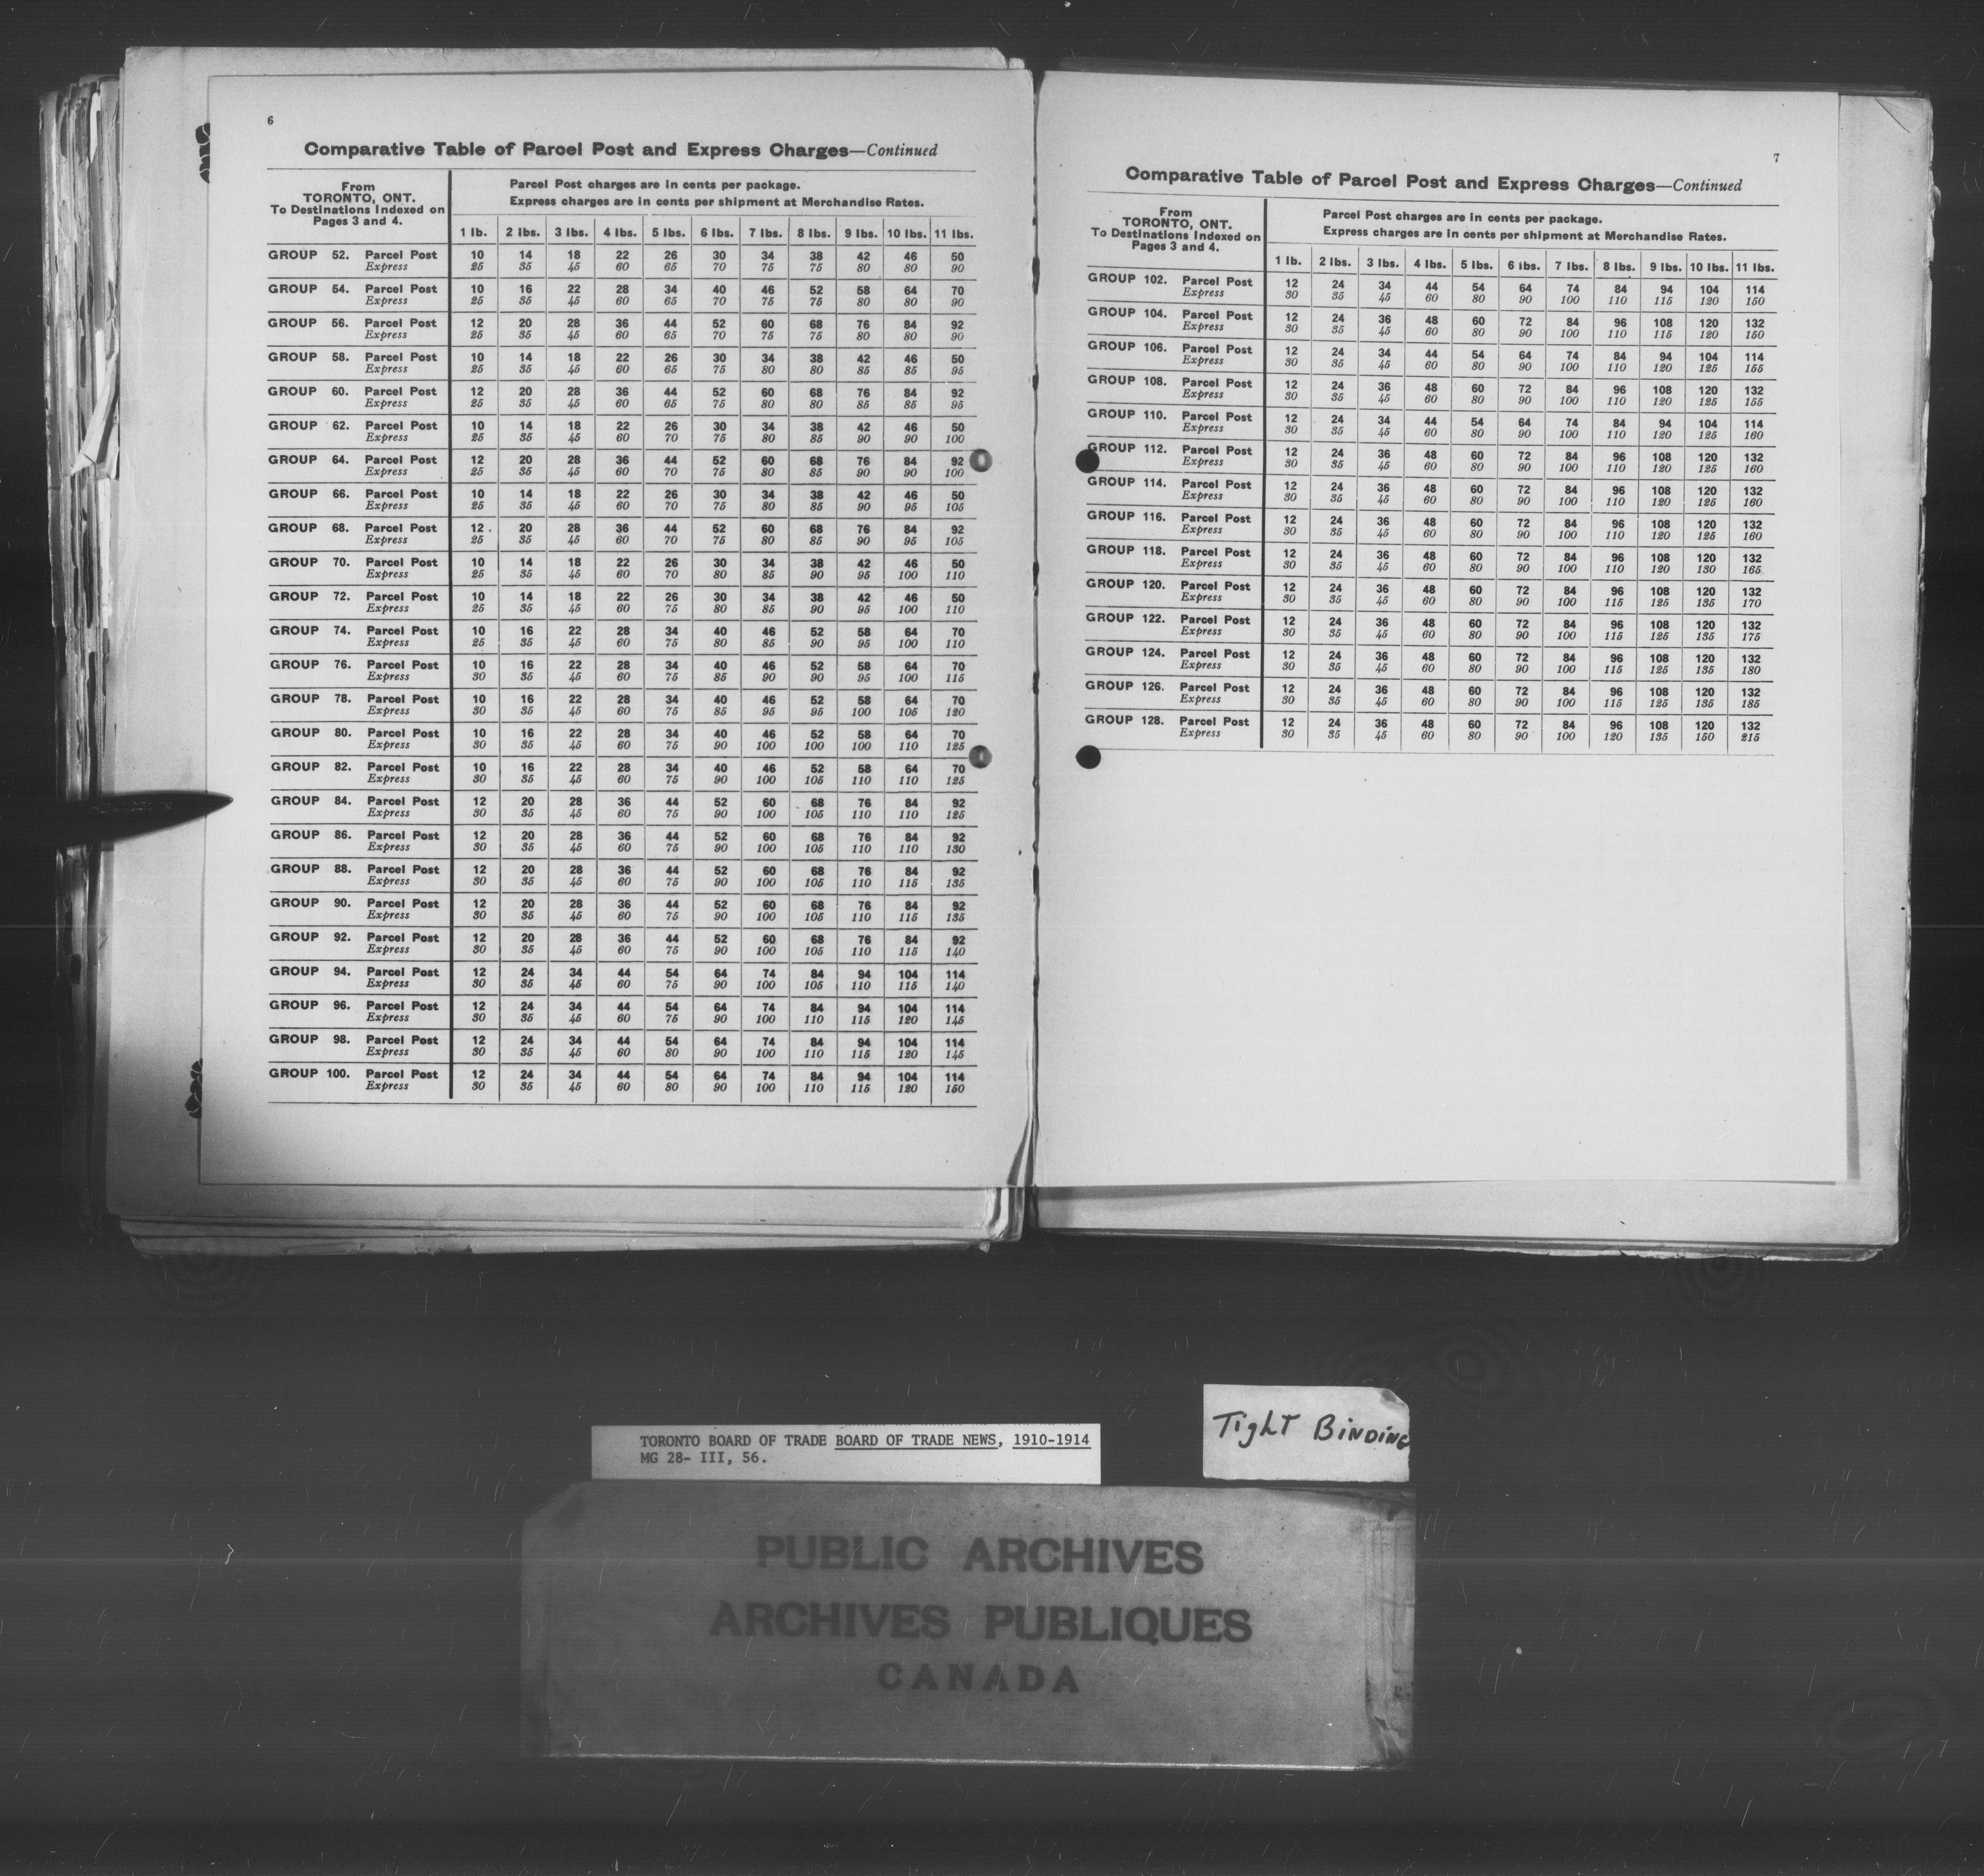 6
Comparative Table of Parcel Post and Express Charges—Continued
From
TORONTO, ONT.
To Destinations Indexed on
Pages 3 and 4.
Parcel Post charges are in cents per package.
Express charges are in cents per shipment at Merchandise Rates.
1 lb. 2 lbs. 3 lbs. 4 lbs. 5 lbs. 6 lbs. 7 lbs. 8 lbs. 9 lbs. 10 lbs. 11 lbs.
GROUP 52. Parcel Post 10 14 18 22 26 30 34 38 42 46 50
Express 25 35 45 60 65 70 75 75 80 80 90
GROUP 54. Parcel Post 10 16 22 28 34 40 46 52 58 64 70
Express 25 35 45 60 65 70 75 75 80 80 90
GROUP 56. Parcel Post 12 20 28 36 44 52 60 68 76 84 92
Express 25 35 45 60 65 70 75 75 80 80 90
GROUP 58. Parcel Post 10 14 18 22 26 30 34 38 42 46 50
Express 25 35 45 60 65 75 80 80 85 85 95
GROUP 60. Parcel Post 12 20 28 36 44 52 60 68 76 84 92
Express 25 35 45 60 65 75 80 80 85 85 95
GROUP 62. Parcel Post 10 14 18 22 26 30 34 38 42 46 50
Express 25 35 45 60 70 75 80 85 90 90 100
GROUP 64. Parcel Post 12 20 28 36 44 52 60 68 76 84 92
Express 25 35 45 60 70 75 80 85 90 90 100
GROUP 66. Parcel Post 10 14 18 22 26 30 34 38 42 46 50
Express 25 35 45 60 70 75 80 85 90 95 105
GROUP 68. Parcel Post 12 20 28 36 44 52 60 68 76 84 92
Express 25 35 45 60 70 75 80 85 90 95 105
GROUP 70. Parcel Post 10 14 18 22 26 30 34 38 42 46 50
Express 25 35 45 60 70 80 85 90 95 100 110
GROUP 72. Parcel Post 10 14 18 22 26 30 34 38 42 46 50
Express 25 35 45 60 75 80 85 90 95 100 110
GROUP 74. Parcel Post 10 16 22 28 34 40 46 52 58 64 70
Express 25 35 45 60 75 80 85 90 95 100 110
GROUP 76. Parcel Post 10 16 22 28 34 40 46 52 58 64 70
Express 30 35 45 60 75 85 90 90 95 100 115
GROUP 78. Parcel Post 10 16 22 28 34 40 46 52 58 64 70
Express 30 35 45 60 75 85 95 95 100 105 120
GROUP 80. Parcel Post 10 16 22 28 34 40 46 52 58 64 70
Express 30 35 45 60 75 90 100 100 100 110 125
GROUP 82. Parcel Post 10 16 22 28 34 40 46 52 58 64 70
Express 30 35 45 60 75 90 100 105 110 110 125
GROUP 84. Parcel Post 12 20 28 36 44 52 60 68 76 84 92
Express 30 35 45 60 75 90 100 105 110 110 125
GROUP 86. Parcel Post 12 20 28 36 44 52 60 68 76 84 92
Express 30 35 45 60 75 90 100 105 110 110 130
GROUP 88. Parcel Post 12 20 28 36 44 52 60 68 76 84 92
Express 30 35 45 60 75 90 100 105 110 115 135
GROUP 90. Parcel Post 12 20 28 36 44 52 60 68 76 84 92
Express 30 35 45 60 75 90 100 105 110 115 135
GROUP 92. Parcel Post 12 20 28 36 44 52 60 68 76 84 92
Express 30 35 45 60 75 90 100 105 110 115 140
GROUP 94. Parcel Post 12 24 34 44 54 64 74 84 94 104 114
Express 30 35 45 60 75 90 100 105 110 115 140
GROUP 96. Parcel Post 12 24 34 44 54 64 74 84 94 104 114
Express 30 35 45 60 75 90 100 110 115 120 145
GROUP 98. Parcel Post 12 24 34 44 54 64 74 84 94 104 114
Express 30 35 45 60 80 90 100 110 115 120 145
GROUP 100. Parcel Post 12 24 34 44 54 64 74 84 94 104 114
Express 30 35 45 60 80 90 100 110 115 120 150
7
Comparative Table of Parcel Post and Express Charges—Continued
From
TORONTO, ONT.
To Destinations Indexed on
Pages 3 and 4.
Parcel Post charges are in cents per package.
Express charges are in cents per shipment at Merchandise Rates.
1 lb. 2 lbs. 3 lbs. 4 lbs. 5 lbs. 6 lbs. 7 lbs. 8 lbs. 9 lbs. 10 lbs. 11 lbs.
GROUP 102. Parcel Post 12 24 34 44 54 64 74 84 94 104 114
Express 30 35 45 60 80 90 100 110 115 120 150
GROUP 104. Parcel Post 12 24 36 48 60 72 84 96 108 120 132
Express 30 35 45 60 80 90 100 110 115 120 150
GROUP 106. Parcel Post 12 24 34 44 54 64 74 84 94 104 114
Express 30 35 45 60 80 90 100 110 120 125 155
GROUP 108. Parcel Post 12 24 36 48 60 72 84 96 108 120 132
Express 30 35 45 60 80 90 100 110 120 125 155
GROUP 110. Parcel Post 12 24 34 44 54 64 74 84 94 104 114
Express 30 35 45 60 80 90 100 110 120 125 160
GROUP 112. Parcel Post 12 24 36 48 60 72 84 96 108 120 132
Express 30 35 45 60 80 90 100 110 120 125 160
GROUP 114. Parcel Post 12 24 36 48 60 72 84 96 108 120 132
Express 30 35 45 60 80 90 100 110 120 125 160
GROUP 116. Parcel Post 12 24 36 48 60 72 84 96 108 120 132
Express 30 35 45 60 80 90 100 110 120 125 160
GROUP 118. Parcel Post 12 24 36 48 60 72 84 96 108 120 132
Express 30 35 45 60 80 90 100 110 120 130 165
GROUP 120. Parcel Post 12 24 36 48 60 72 84 96 108 120 132
Express 30 35 45 60 80 90 100 115 125 135 170
GROUP 122. Parcel Post 12 24 36 48 60 72 84 96 108 120 132
Express 30 35 45 60 80 90 100 115 125 135 175
GROUP 124. Parcel Post 12 24 36 48 60 72 84 96 108 120 132
Express 30 35 45 60 80 90 100 115 125 135 180
GROUP 126. Parcel Post 12 24 36 48 60 72 84 96 108 120 132
Express 30 35 45 60 80 90 100 115 125 135 185
GROUP 128. Parcel Post 12 24 36 48 60 72 84 96 108 120 132
Express 30 35 45 60 80 90 100 120 135 150 215
TORONTO BOARD OF TRADE BOARD OF TRADE NEWS, 1910-1914
MG 28- III, 56.
TighT BiNDiNG
PUBLIC ARCHIVES
ARCHIVES PUBLIQUES
CANADA